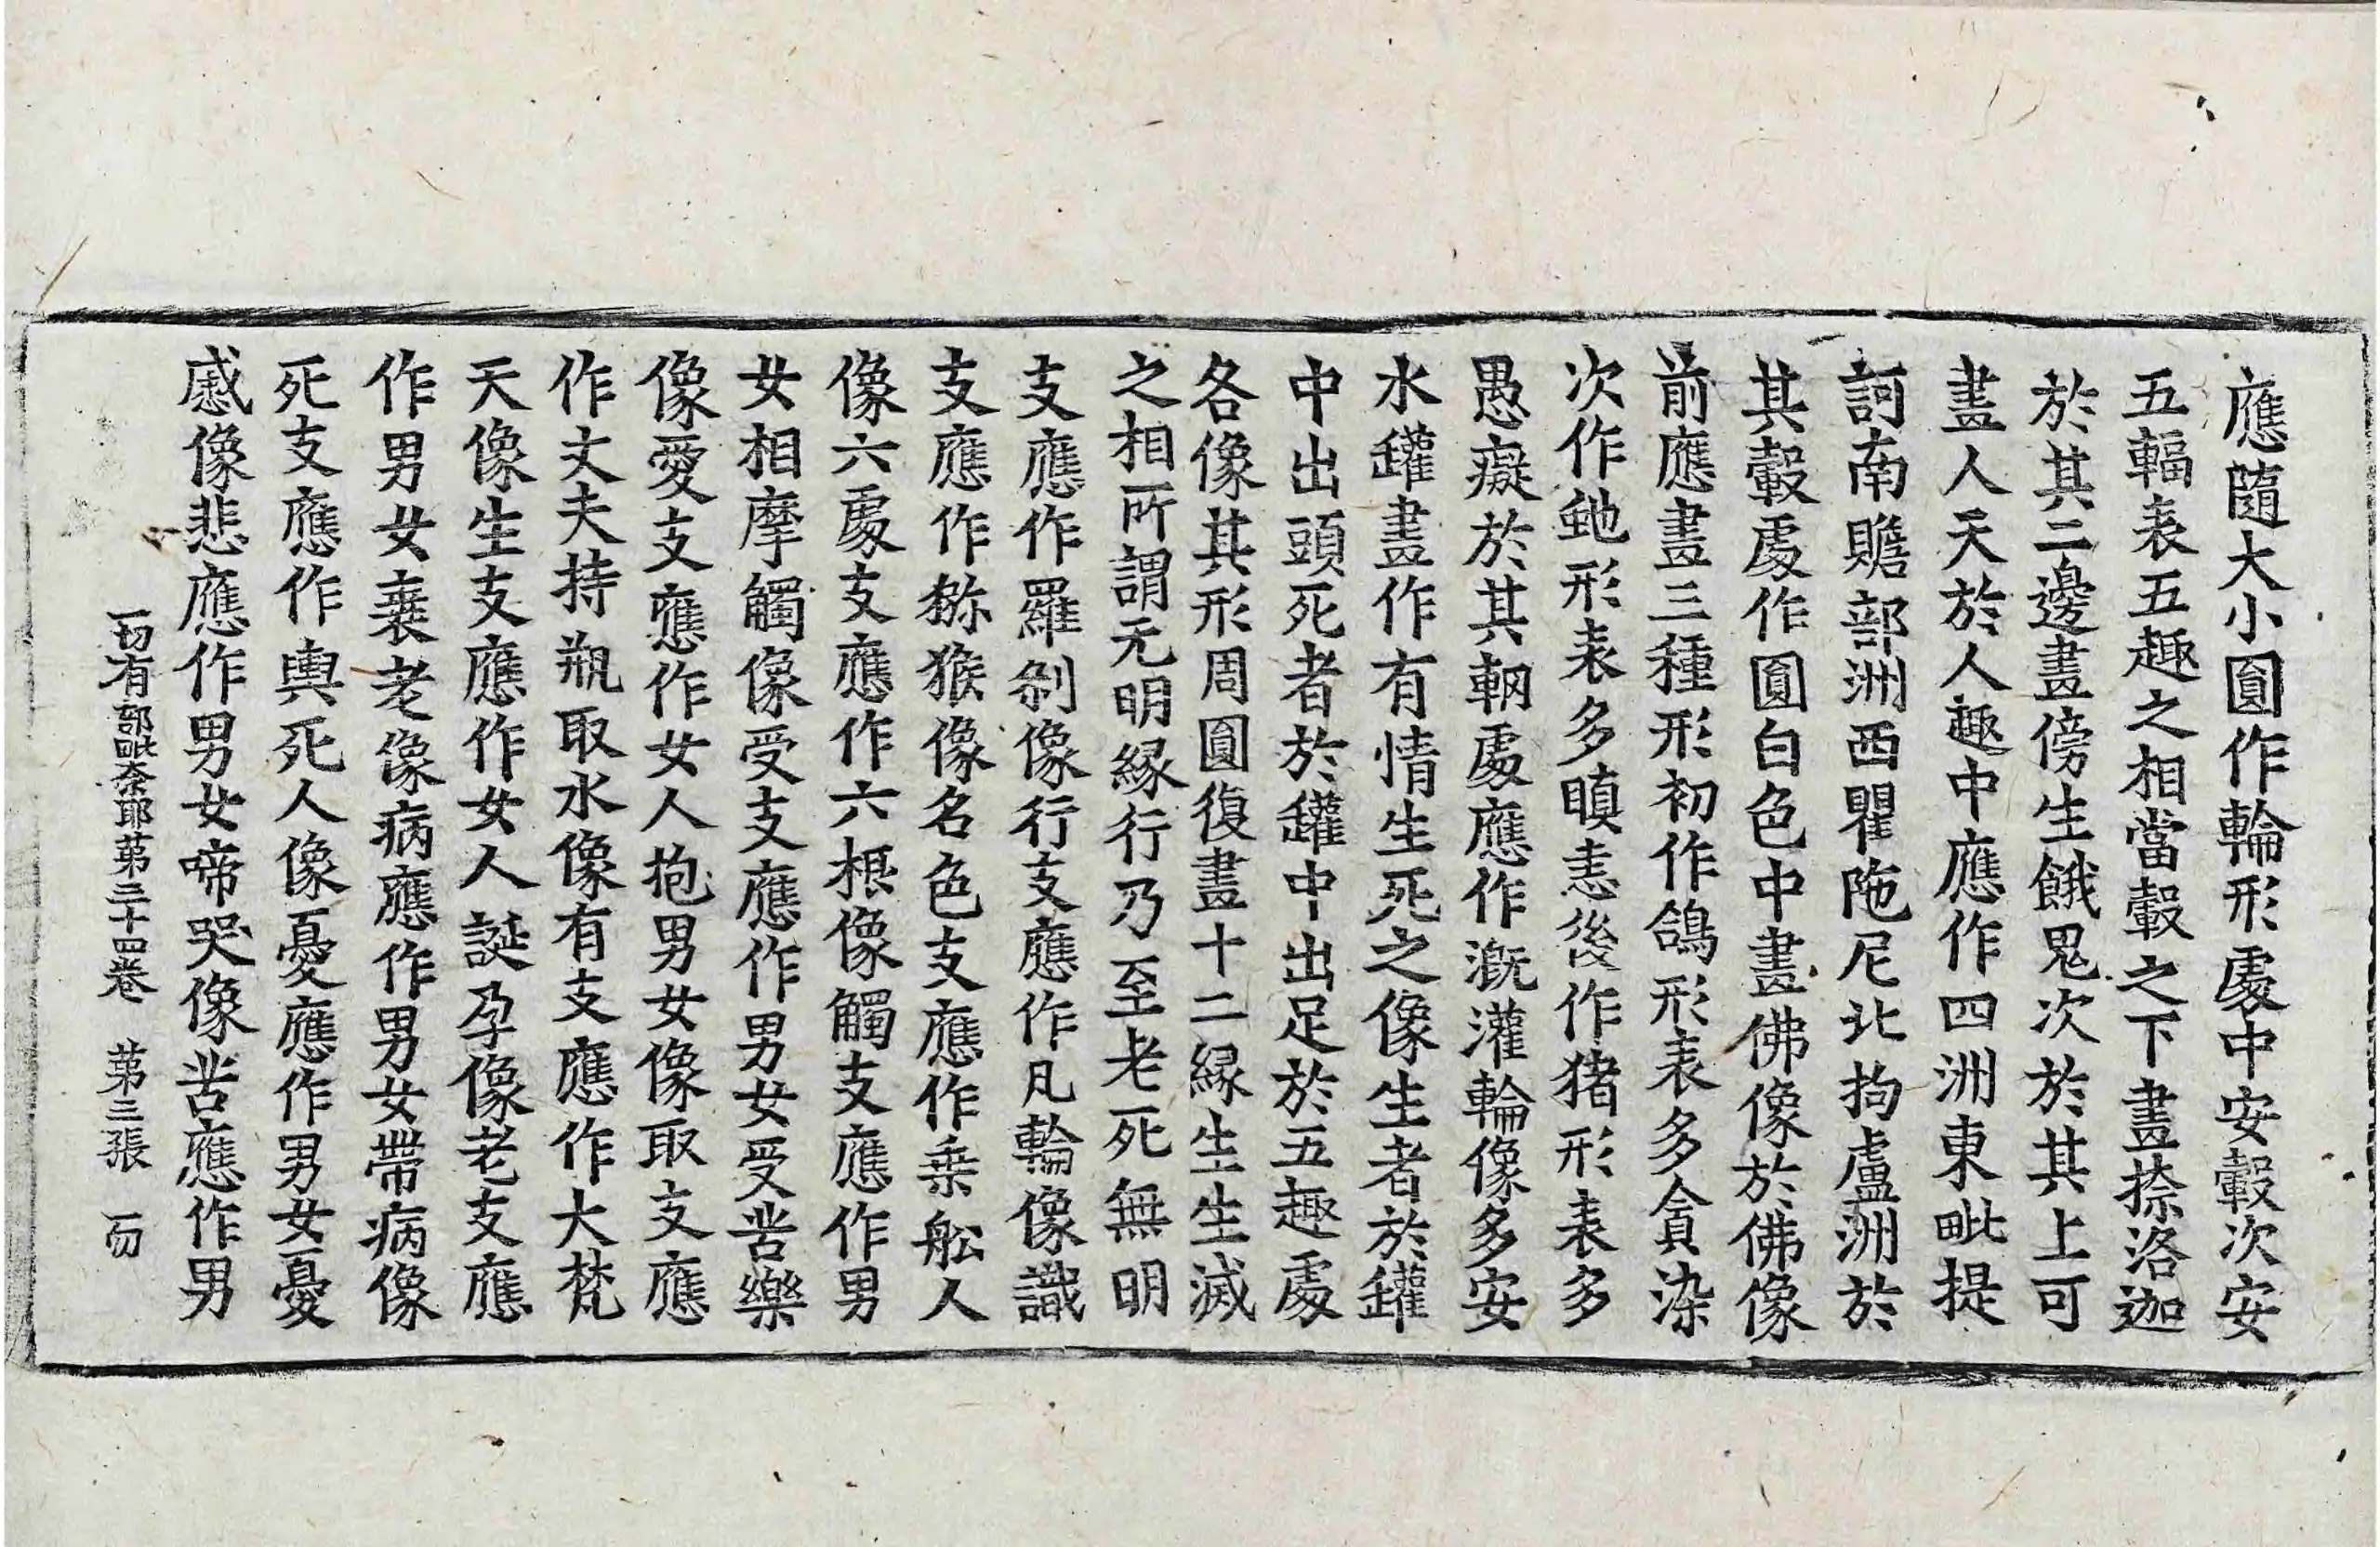 應隨大小圓作輪形處中安轂次安
五輻表五趣之相當轂之下畫捺洛迦
於其二邊畫傍生餓鬼次於其上可
畫人天於人趣中應作四洲東毗提
訶南贍部洲西瞿陁尼北拘盧洲於
其轂處作圓白色中畫佛像於佛像
前應畫三種形初作鴿形表多貪染
次作虵形表多瞋恚後作猪形表多
愚癡於其輞處應作溉灌輪像多安
水罐畫作有情生死之像生者於罐
中出頭死者於罐中出足於五趣處
各像其形周圓復畫十二緣生生滅
之相所謂无明緣行乃至老死無明
支應作羅剎像行支應作凡輪像識
支應作獼猴像名色支應作乗舩人
像六處支應作六根像觸支應作男
女相摩觸像受支應作男女受苦樂
像愛支應作女人抱男女像取支應
作丈夫持瓶取水像有支應作大梵
天像生支應作女人誕孕像老支應
作男女衰老像病應作男女帶病像
死支應作輿死人像憂應作男女憂
慼像悲應作男女啼哭像苦應作男
一切有部毗奈耶第三十四卷　第三張